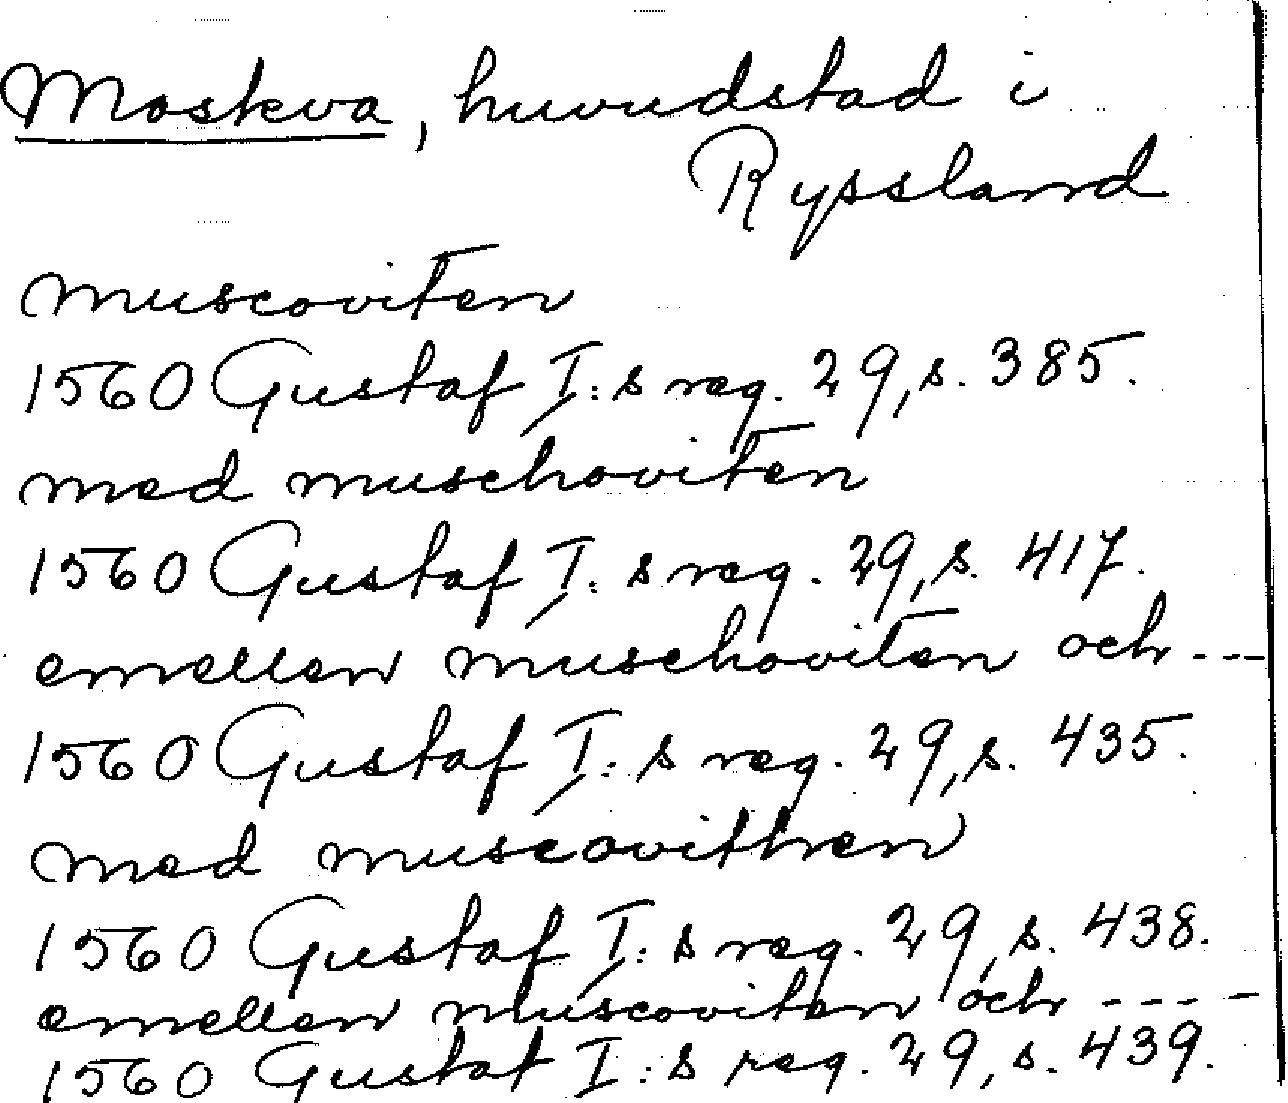 Moskva, huvudstad i
Ryssland
muscoviten
1560 Gustaf I:s reg. 29, s. 385.
med muschoviten
1560 Gustaf I:s reg. 29, s. 417.
emellen muschoviten och ---
1560 Gustaf I:s reg. 29, s. 435.
med muscovithen
1560 Gustaf I:s reg. 29, s. 438.
emellen muscoviten och ----
1560 Gustaf I:s reg. 29, s. 439.